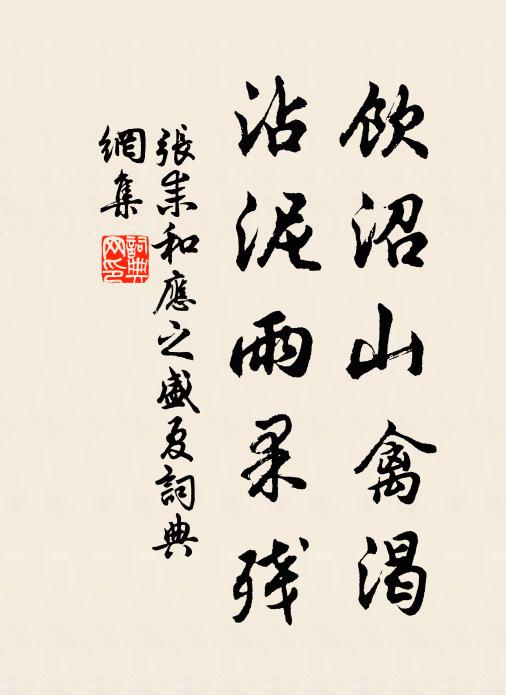 饮沼山禽渴
沾泥雨果残
張耒和應之盛夏詞典
網集
詞典網印